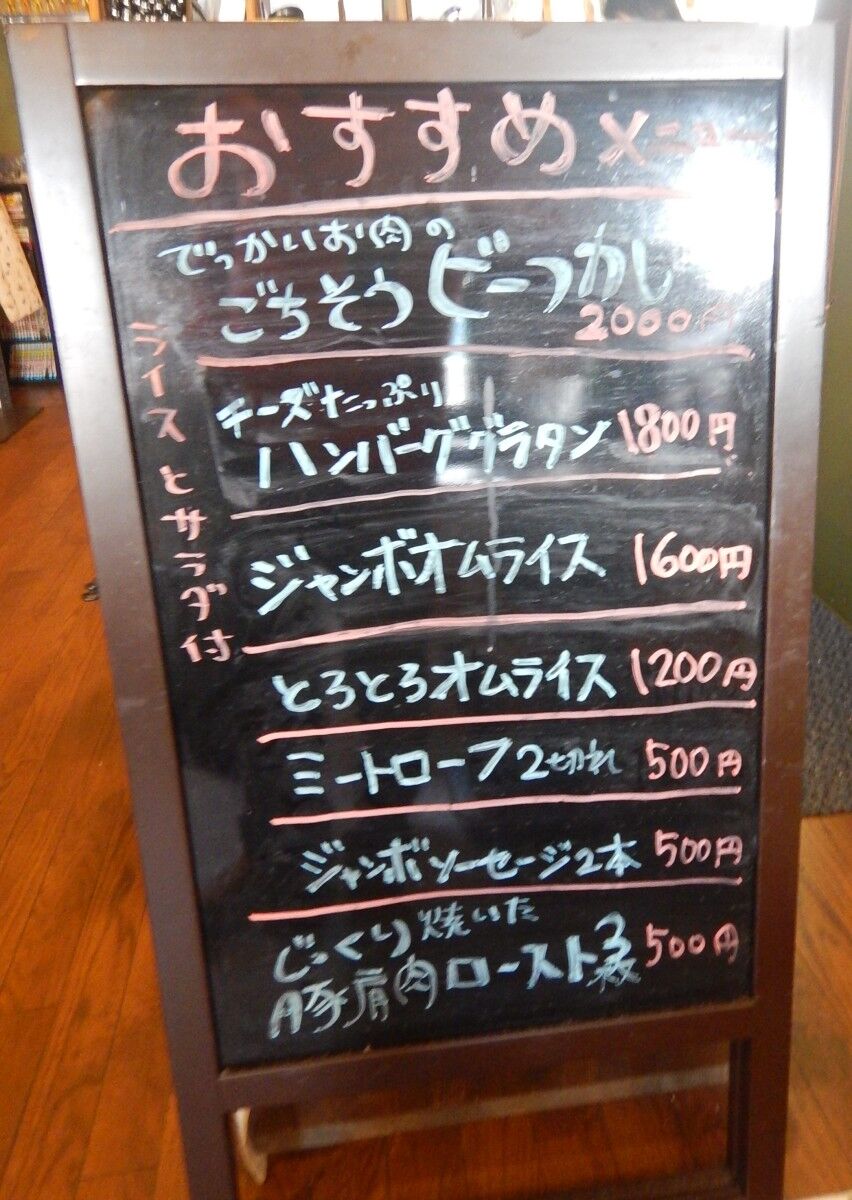 おすすめメニュー
でっかいお肉の
ごちそうビーフかし
2000円
ライスとサラダ付
チーズたっぷり
ハンバーググラタン 1800円
ジャンボオムライス 1600円
とろとろオムライス 1200円
ミートローフ2切れ 500円
ジャンボソーセージ2本 500円
じっくり焼いた
豚肩肉ロースト3枚 500円